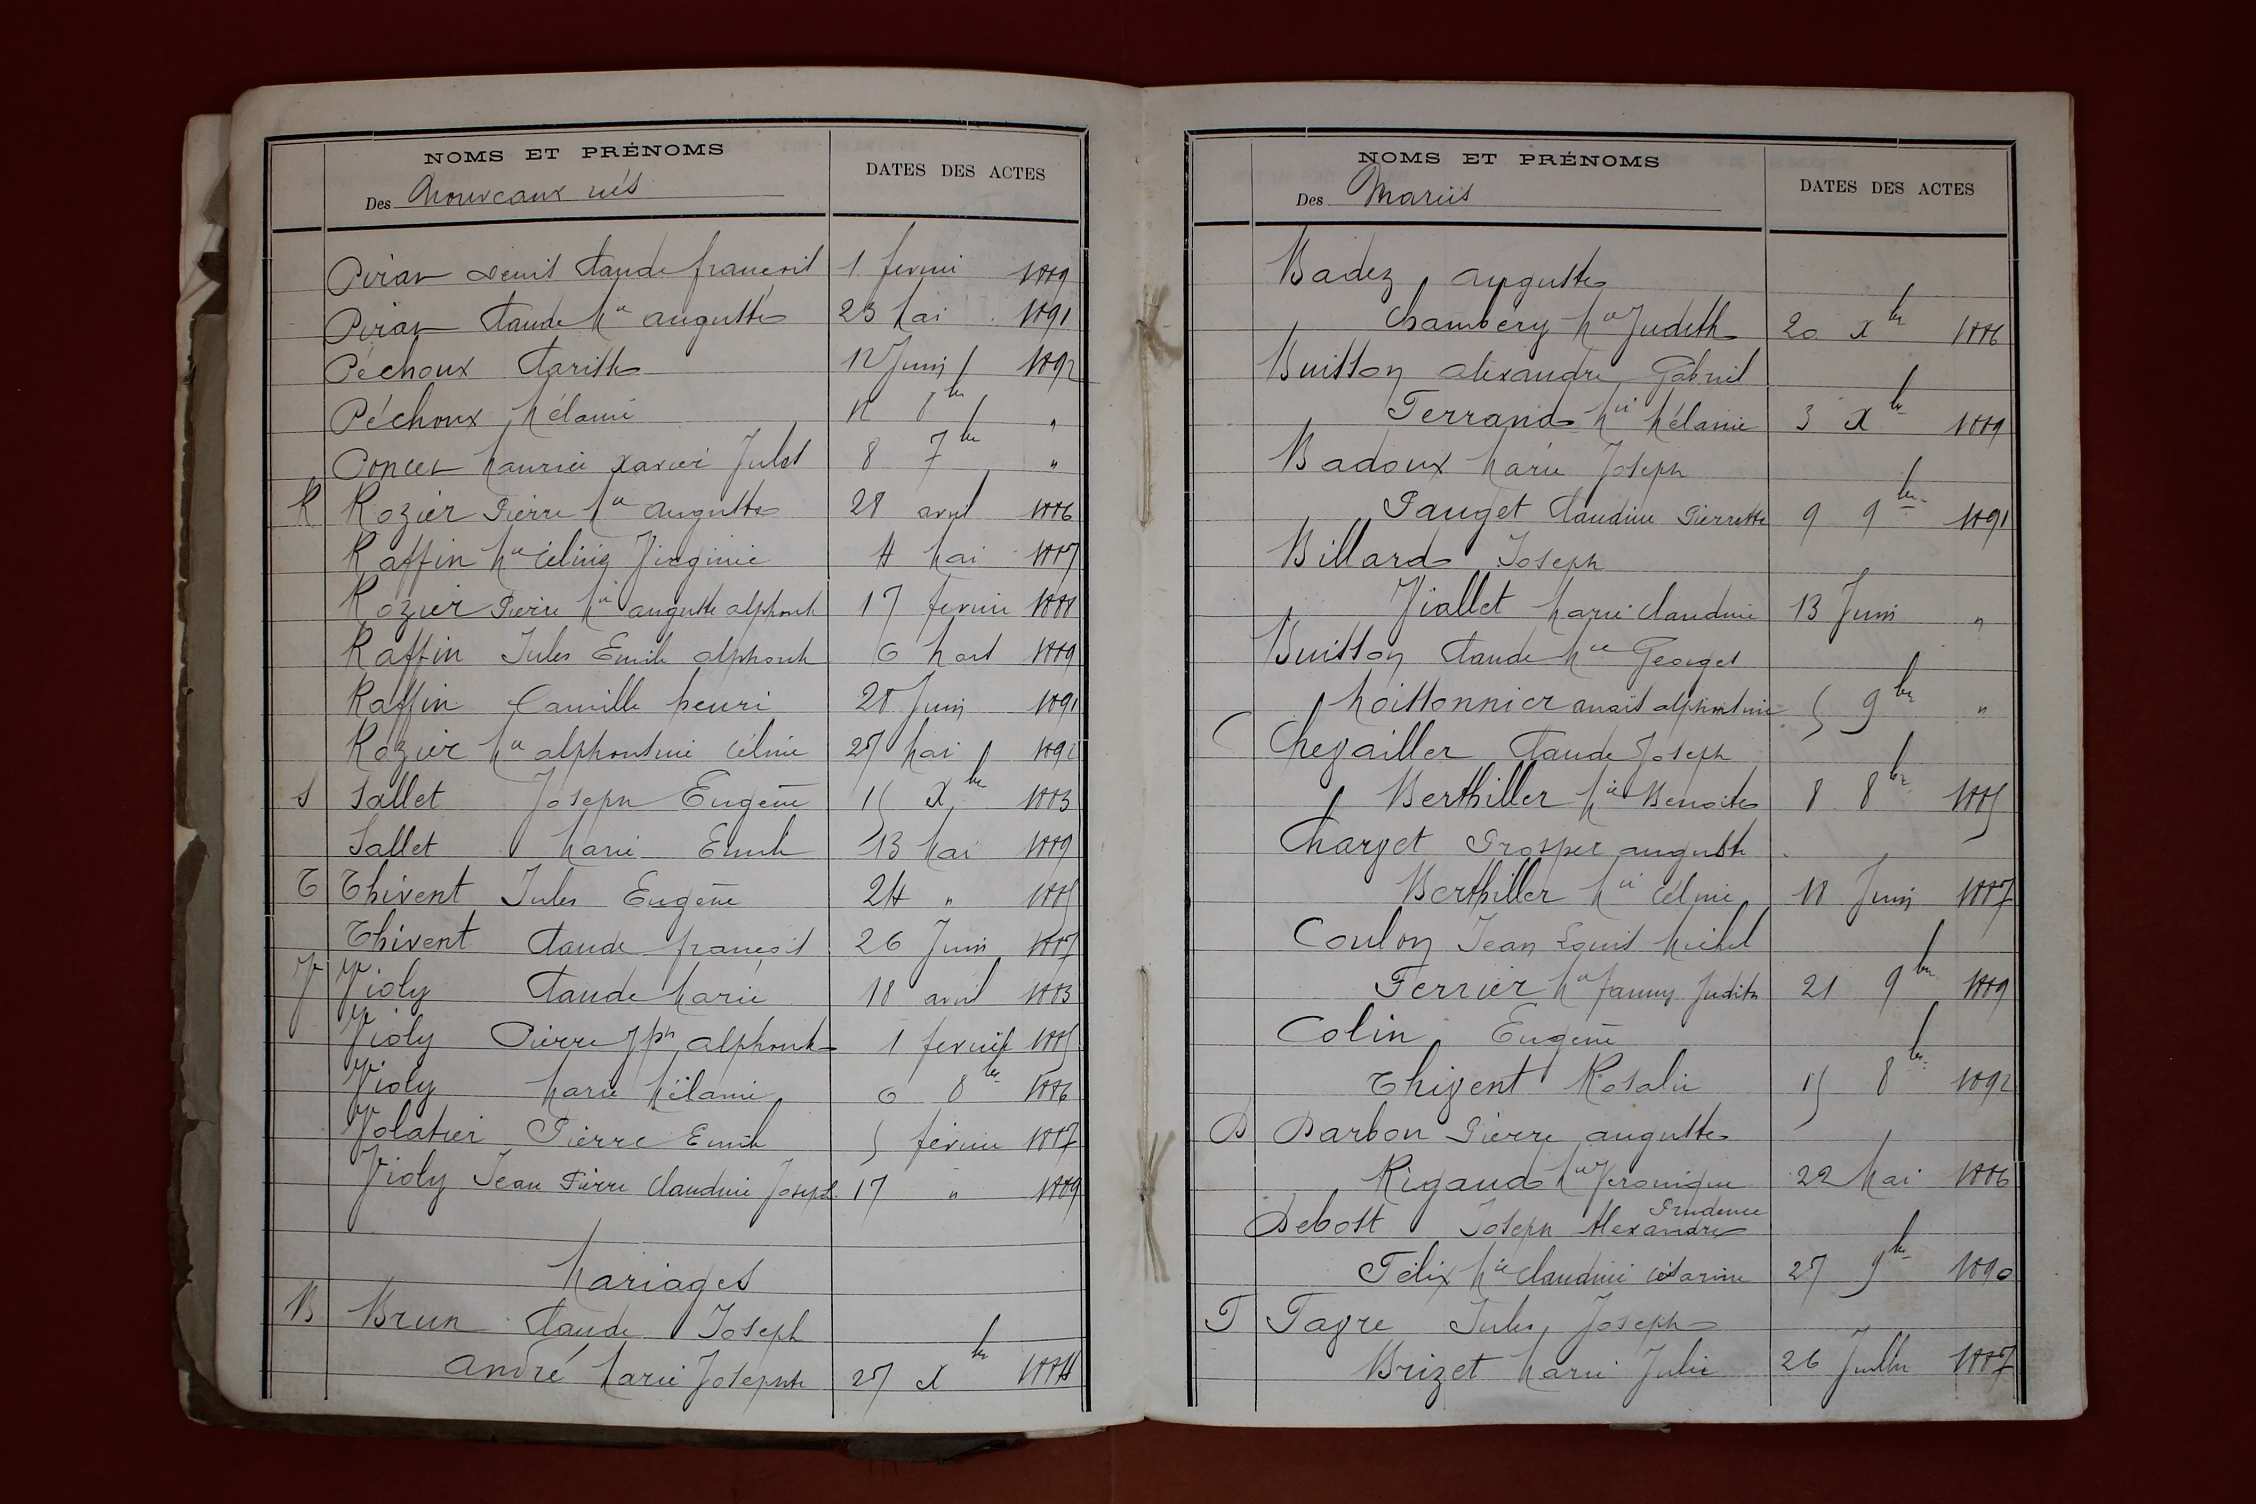 NOMS ET PRÉNOMS
DATES DES ACTES
Des Nouveaux nés
Denis Claude françois 1 fevrier 1889
Claude Mie auguste 23 Mai 1891
Péchoux Clarisse 12 Juin 1892
Péchoux Mélanie 12 8bre "
Poncet Maurice Xavier Jules 8 7bre "
R Rozier Pierre Mie auguste 28 avril 1886
Raffin Mie Célinie Virginie 4 Mai 1887
Rozier Pierre Mie auguste alphonse 17 fevrier 1888
Raffin Jules Emile alphonse 6 Mars 1889
Raffin Camille henri 28 Juin 1891
Rozier Mie alphonsine Céline 25 Mai 1892
S Sallet Joseph Eugène 15 Xbre 1883
Sallet Marie Emile 13 Mai 1889
T Thivent Jules Eugène 24 " 1885
Thivent Claude françois 26 Juin 1887
V Violy Claude Marie 18 avril 1883
Violy Pierre Jph alphonse 1 fevrier 1885
Violy Marie Mélanie 6 8bre 1886
Volatier Pierre Emile 5 février 1887
Violy Jean Pierre Claudine Joseph 17 " 1889
Mariages
B Brun Claude Joseph
André Marie Josephte 25 Xbre 1884
NOMS ET PRÉNOMS
DATES DES ACTES
Des Mariés
Badez auguste
Chambéry Mie Judith 20 Xbre 1886
Buisson alexandre Gabriel
Ferrand Mie Mélanie 3 Xbre 1889
Badoux Marie Joseph
Pauget Claudine Pierrette 9 9bre 1891
Billard Joseph
Viallet Marie Claudine 13 Juin "
Buisson Claude Mie Georges
Moissonnier anaïs alphonsine 5 9bre "
C Chevailler Claude Joseph
Berthiller Mie Benoite 8 8bre 1885
Charvet Prosper auguste
Berthiller Mie Céline 18 Juin 1887
Coulon Jean Louis Michel
Ferrier Mie fanny Judith 21 9bre 1889
Colin Eugène
Thivent Rosalie 15 8bre 1892
D Darbon Pierre auguste
Rigaud Mie Veronique 22 Mai 1886
Prudence
Debost Joseph Alexandre
Félix Mie Claudine Césarine 25 9bre 1890
F Favre Jules Joseph
Brizet Marie Julie 26 Juillet 1887